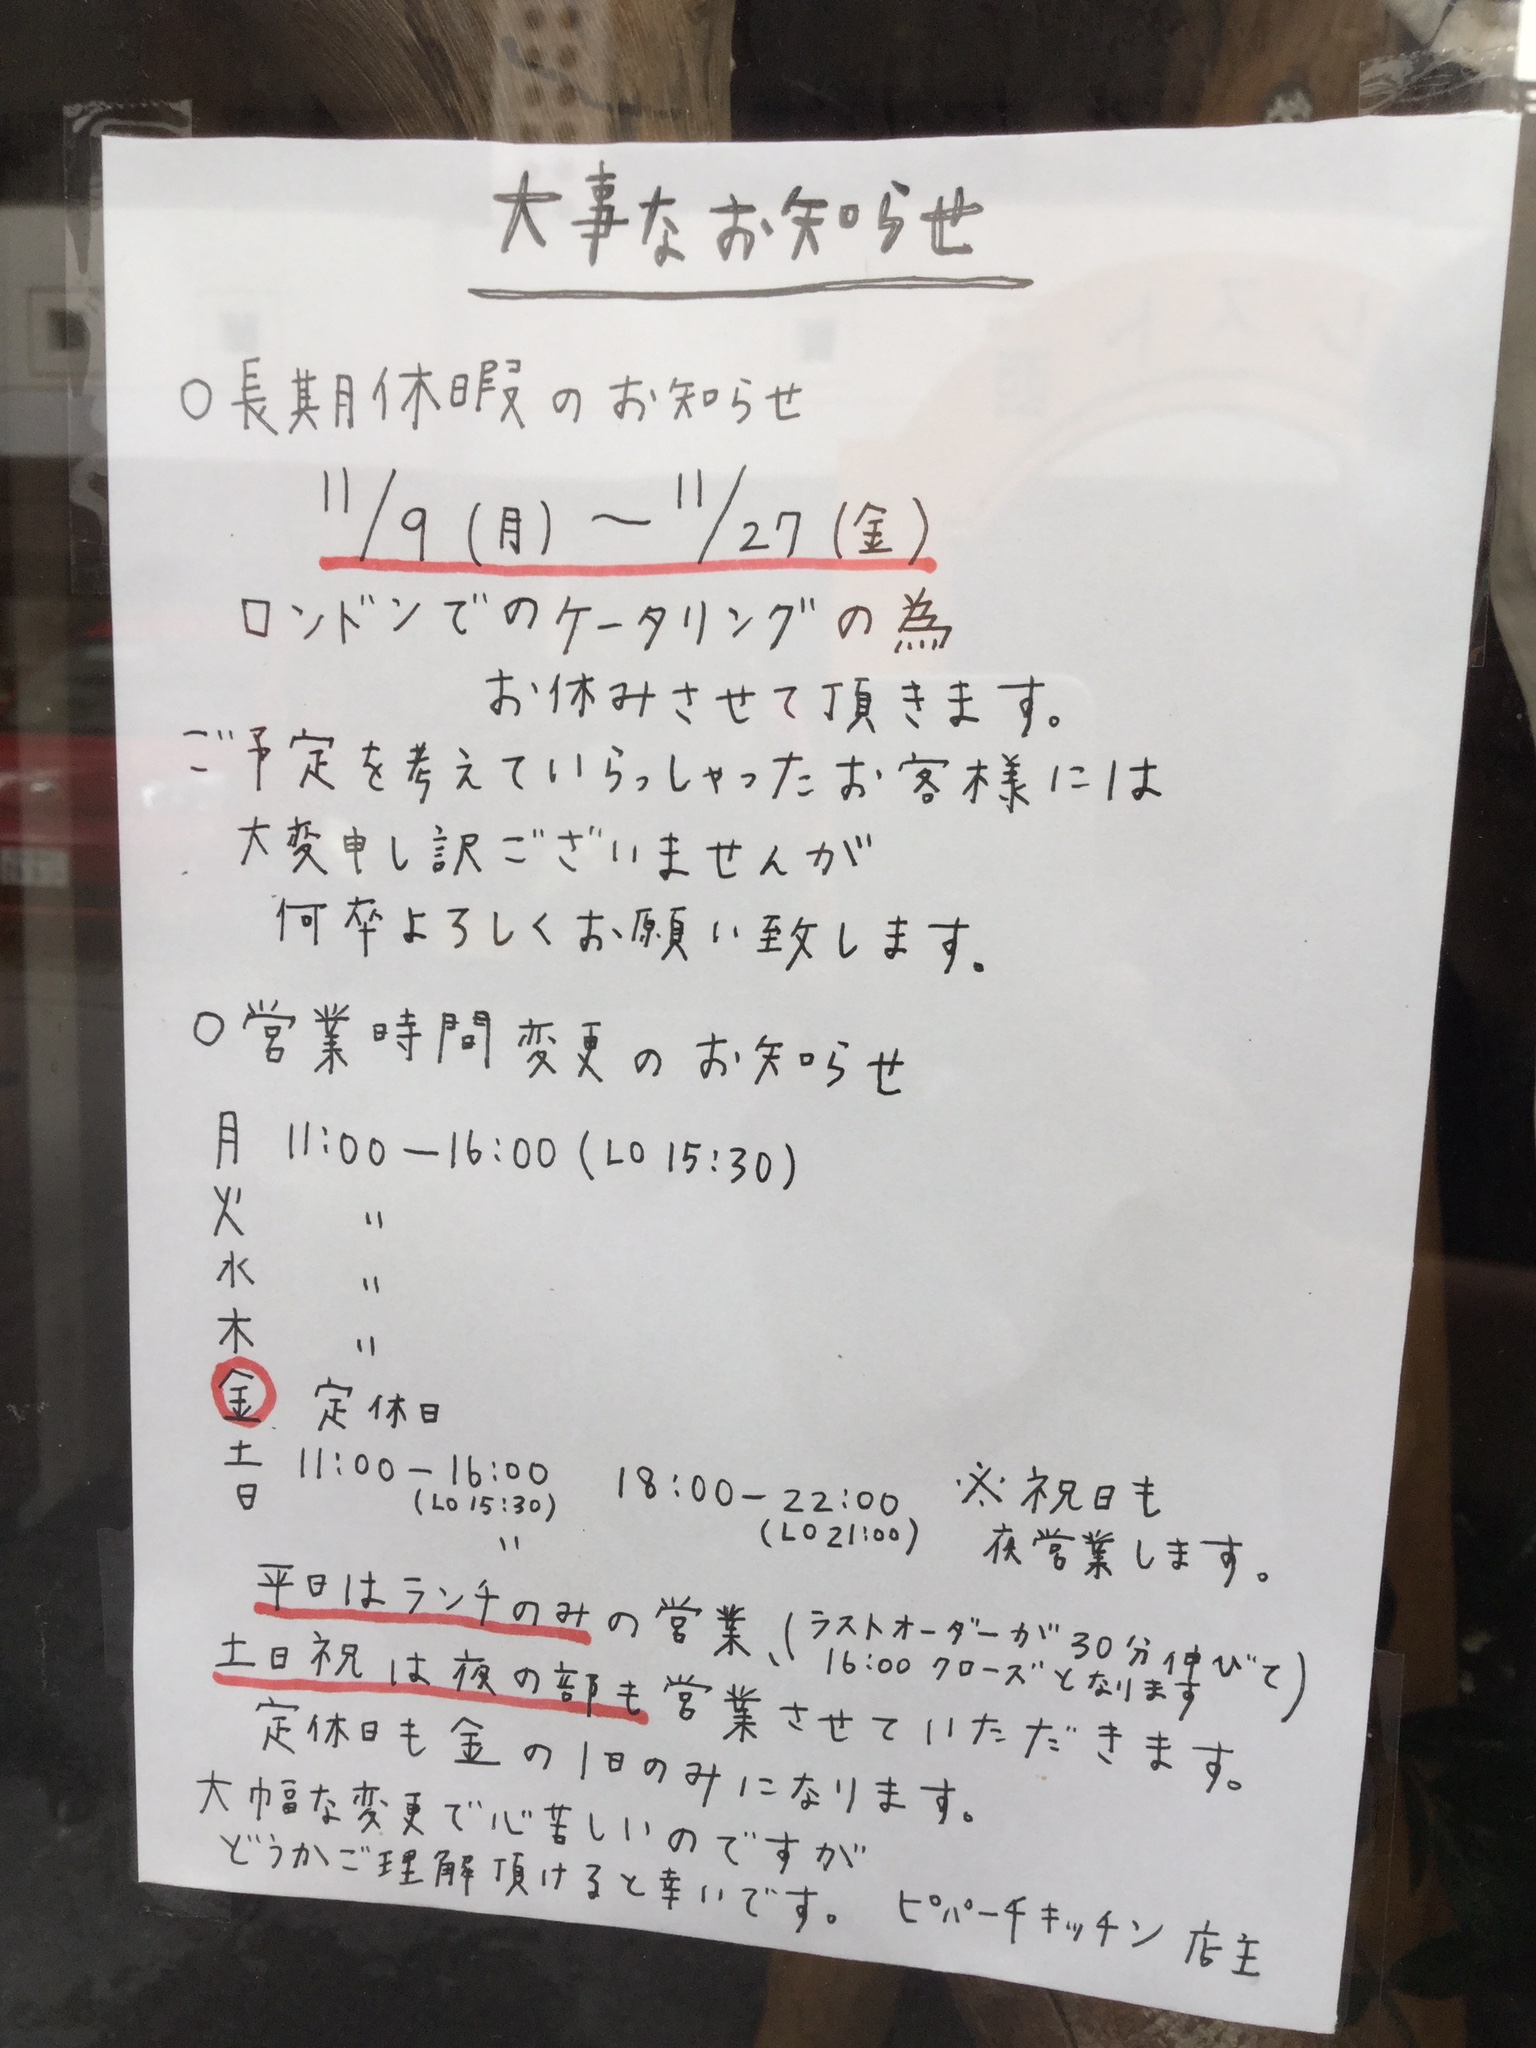 大事なお知らせ
○長期休暇のお知らせ
11/9(月)〜11/27(金)
ロンドンでのケータリングの為
お休みさせて頂きます。
ご予定を考えていらっしゃったお客様には
大変申し訳ございませんが
何卒よろしくお願い致します。
○営業時間変更のお知らせ
月 11:00—16:00(LO 15:30)
火 〃
水 〃
木 〃
金 定休日
土 11:00—16:00 18:00—22:00 ※祝日も
日 (LO 15:30) (LO 21:00) 夜営業します。
〃
平日はランチのみの営業、(ラストオーダーが30分伸びて
16:00クローズとなります)
土日祝は夜の部も営業させていただきます。
定休日も金の1日のみになります。
大幅な変更で心苦しいのですが
どうかご理解頂けると幸いです。 ピパーチキッチン 店主